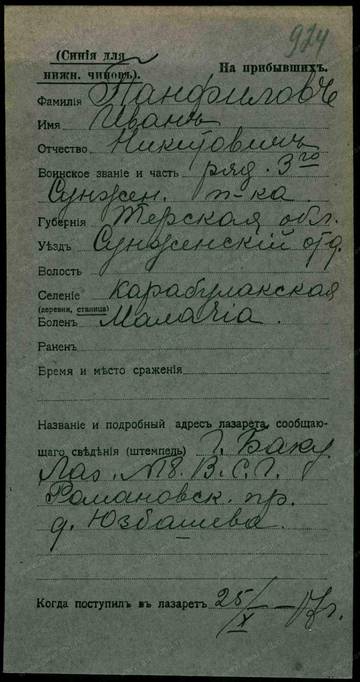 924
(Синія для
нижн. чиновъ).
На прибывшихъ.
Фамилія Панфиловъ
Имя Иванъ
Отчество Никитовичъ
Воинское званіе и часть ряд. 3го
Сунжен. п-ка
Губернія Терская обл.
Уѣздъ Сунженскій отд.
Волость
Селеніе Карабулакская
(деревня, станица)
Боленъ Малачіа.
Раненъ
Время и мѣсто сраженія
Названіе и подробный адресъ лазарета, сообщаю-
щаго свѣдѣнія (штемпель) г. Баку
Лаз. №8. В.С.Г.
Романовск. пр.
д. Юзбашева.
Когда поступилъ въ лазаретъ 25/X – 17 г.